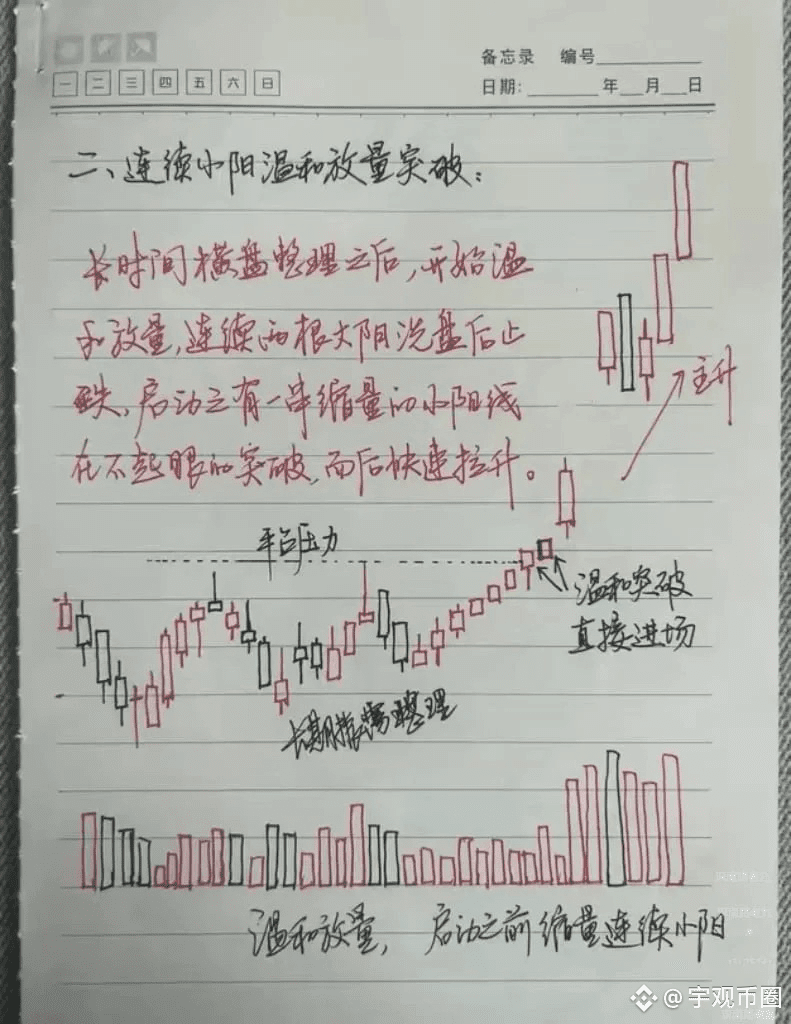 备忘录 编号
一 二 三 四 五 六 日
日期: 年 月 日
二、连续小阳温和放量突破:
长时间横盘整理之后,开始温
和放量,连续两根大阴洗盘后止
跌,启动之有一串缩量的小阳线
在不起眼的突破,而后快速拉升。
主升
平台压力
温和突破
直接进场
长期震荡整理
温和放量, 启动之前缩量连续小阳
@宇观币圈